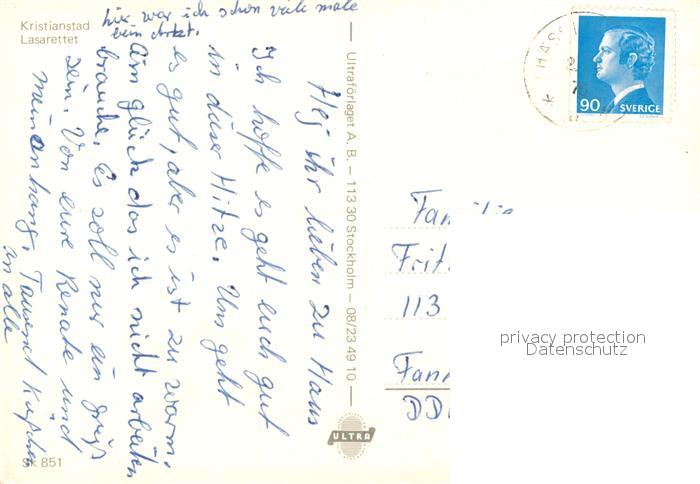 Kristianstad
Lasarettet
hier war ich schon viele male
beim Arzt.
Hej ihr lieben zu Haus
Ich hoffe es geht euch gut
in dieser Hitze. Uns geht
es gut, aber es ist zu warm.
Am glück das ich nicht arbeiten
brauche. Es soll nur ein gruß
sein. Von eure Renate und
mein anhang. Tausend Küßchen
an alle
Sk 851
Ultraförlaget A. B. – 113 30 Stockholm – 08/23 49 10
ULTRA
90 SVERIGE
Familie
Frit
113
DD
privacy protection
Datenschutz